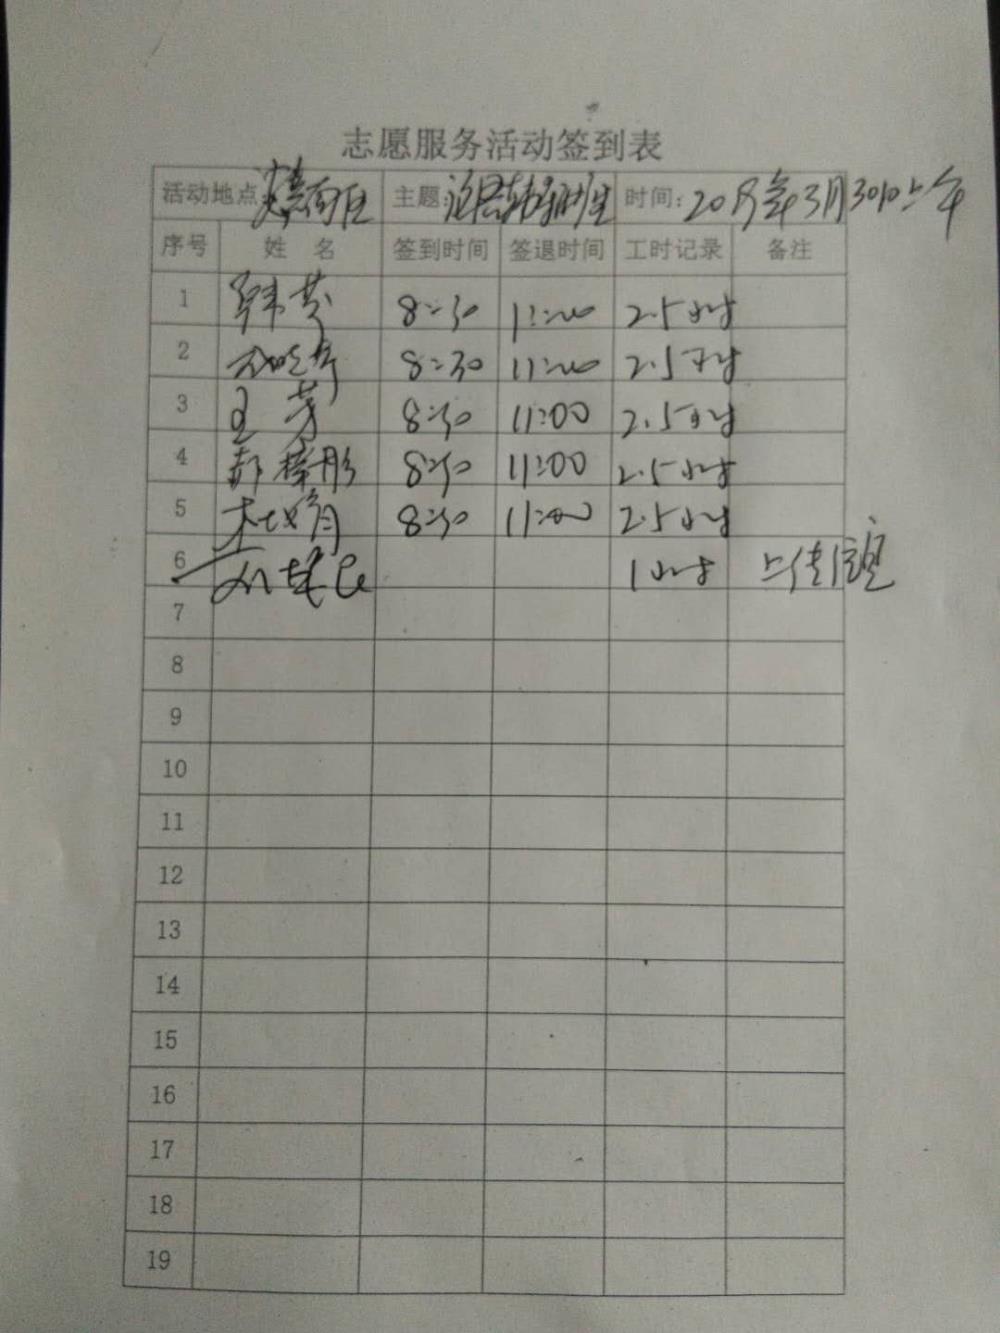 志愿服务活动签到表
活动地点 主题: 时间: 2019年3月30日上午
序号 姓 名 签到时间 签退时间 工时记录 备注
1 韩芬 8:30 11:00 2.5小时
2 8:30 11:00 2.5小时
3 王芳 8:30 11:00 2.5小时
4 8:30 11:00 2.5小时
5 8:30 11:00 2.5小时
6 1小时 上传信息
7
8
9
10
11
12
13
14
15
16
17
18
19